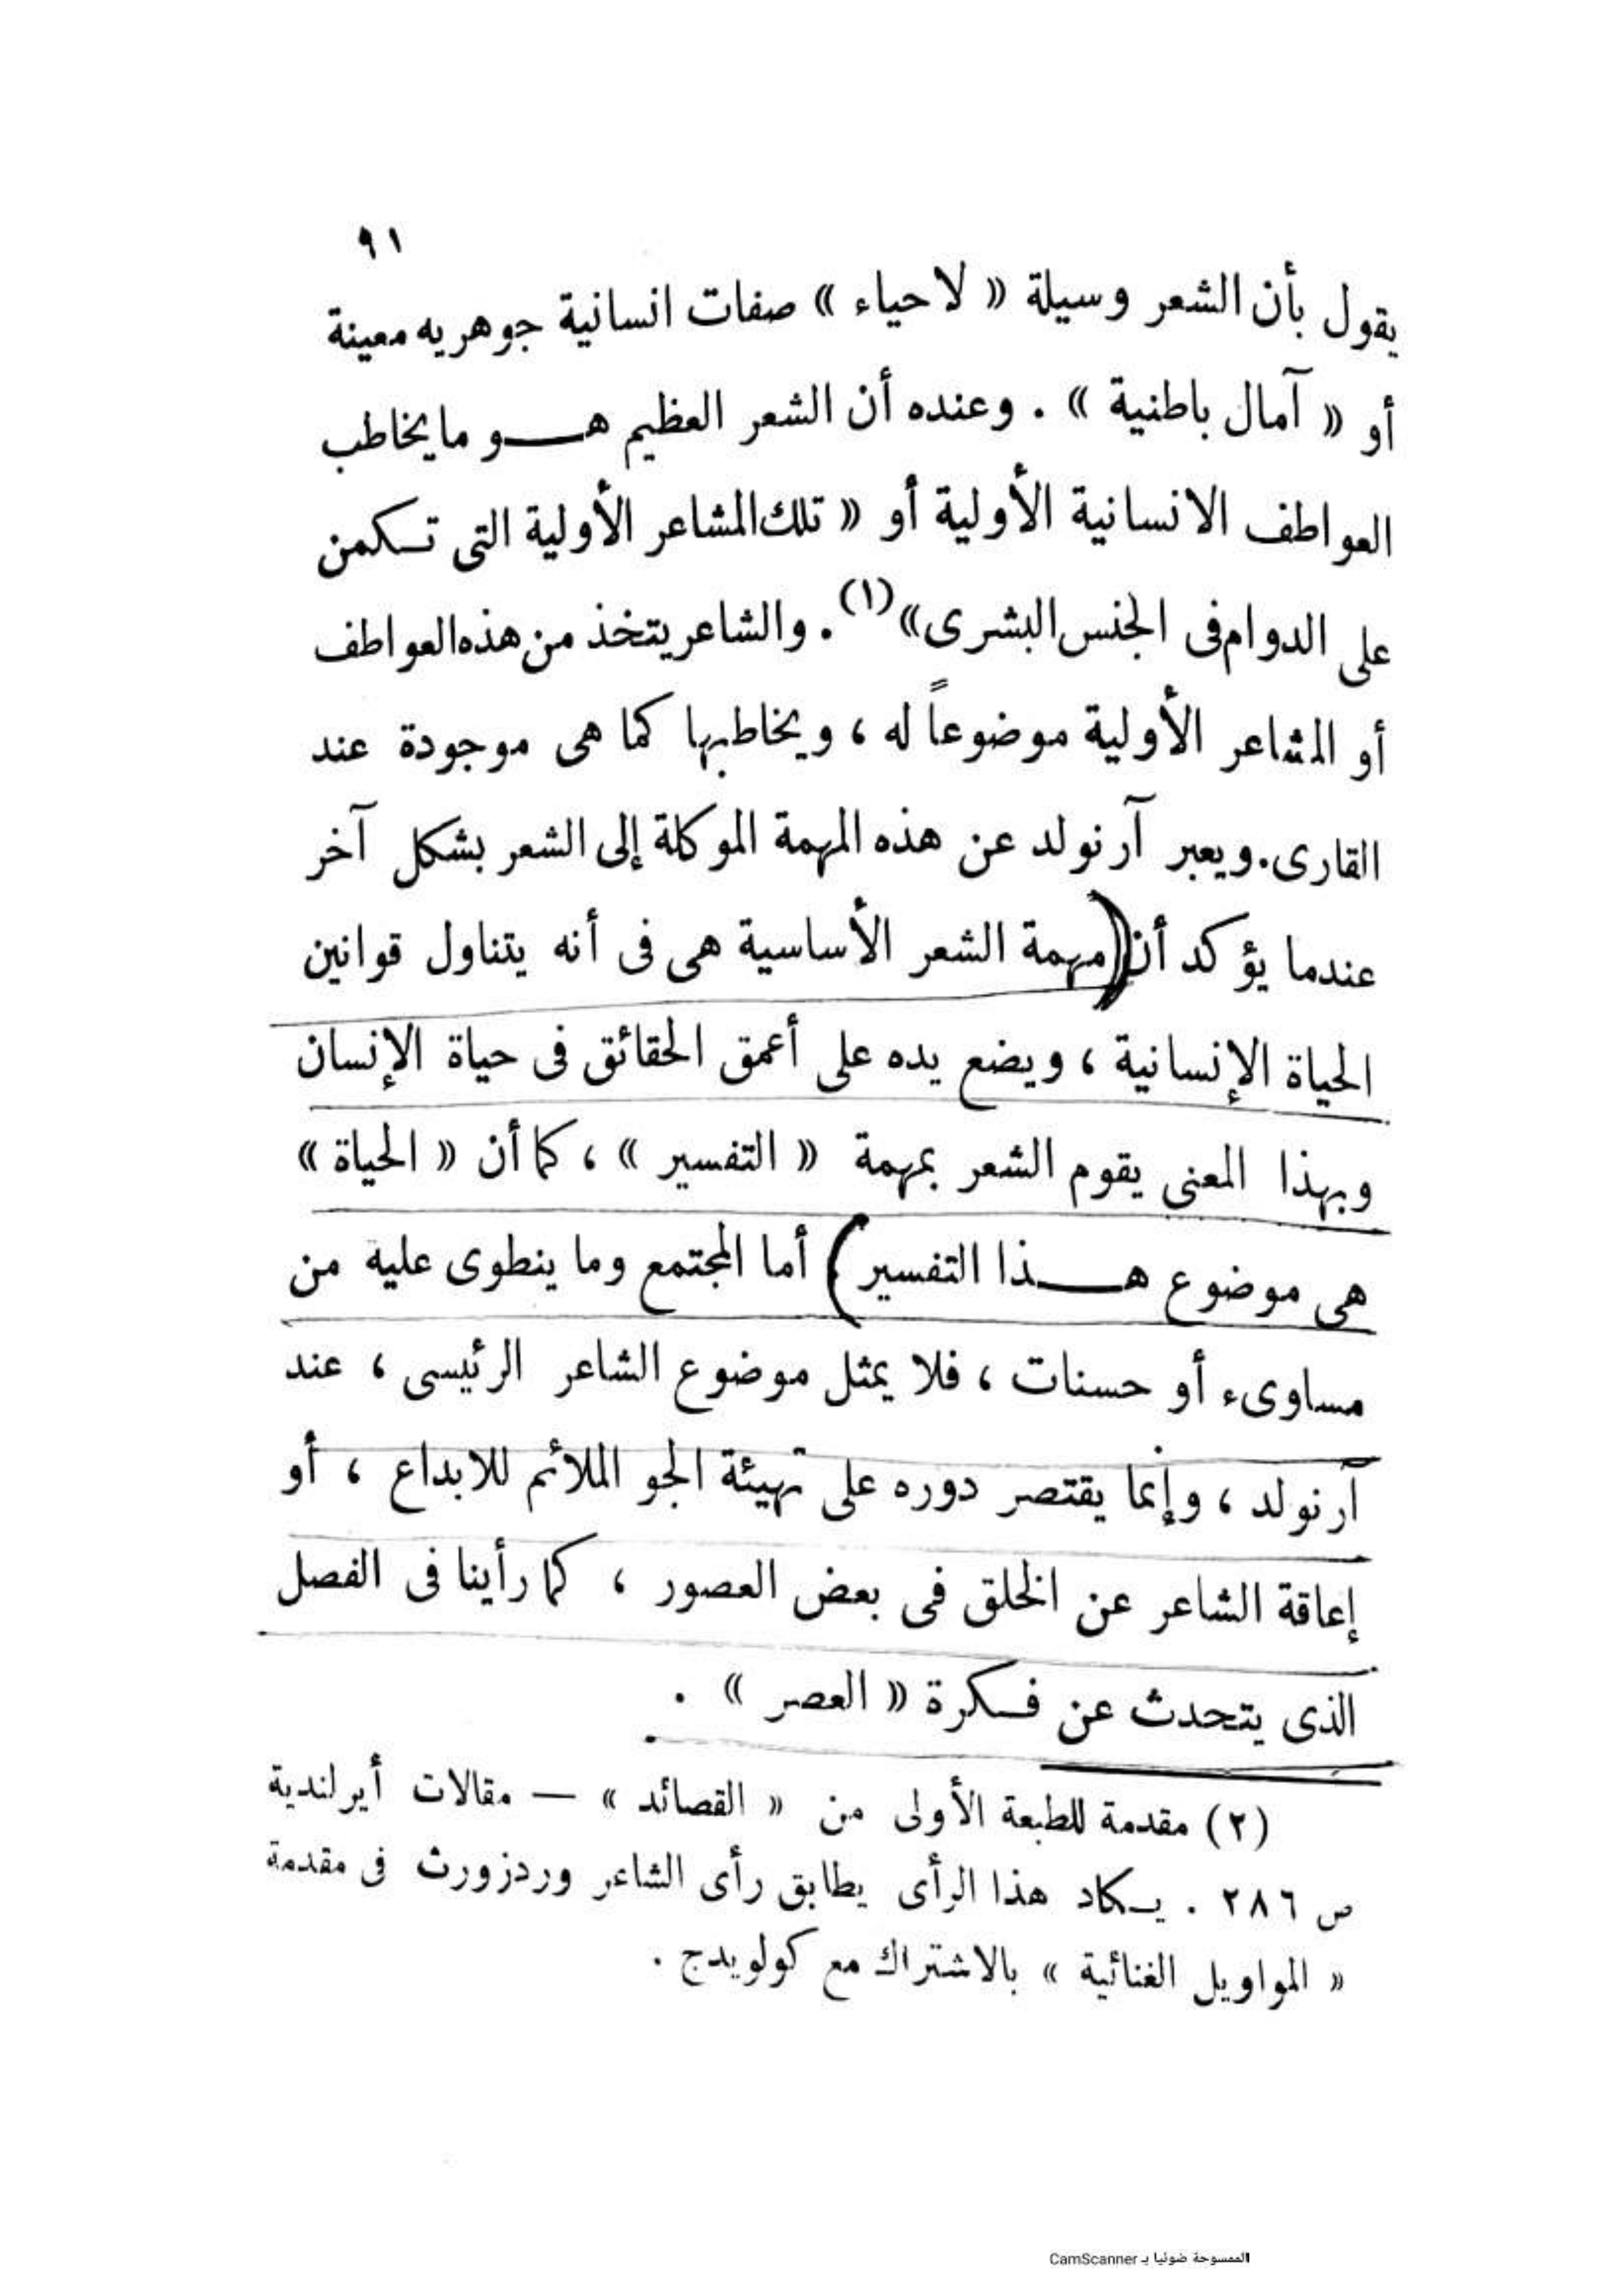 ٩١
يقول بأن الشعر وسيلة « لاحياء » صفات انسانية جوهريه معينة
أو « آمال باطنية » . وعنده أن الشعر العظيم هــو ما يخاطب
العواطف الانسانية الأولية أو « تلك المشاعر الأولية التى تكمن
على الدوام فى الجنس البشرى» (١) . والشاعر يتخذ من هذه العواطف
أو المشاعر الأولية موضوعاً له ، ويخاطبها كما هى موجودة عند
القارى. ويعبر آرنولد عن هذه المهمة الموكلة إلى الشعر بشكل آخر
عندما يؤكد أن (مهمة الشعر الأساسية هى فى أنه يتناول قوانين
الحياة الإنسانية ، ويضع يده على أعمق الحقائق فى حياة الإنسان
وبهذا المعنى يقوم الشعر بمهمة « التفسير » ، كما أن « الحياة »
هى موضوع هــذا التفسير ) أما المجتمع وما ينطوى عليه من
مساوىء أو حسنات ، فلا يمثل موضوع الشاعر الرئيسى ، عند
آرنولد ، وإنما يقتصر دوره على تهيئة الجو الملائم للابداع ، أو
إعاقة الشاعر عن الخلق فى بعض العصور ، كما رأينا فى الفصل
الذى يتحدث عن فكرة « العصر » .
(٢) مقدمة للطبعة الأولى من « القصائد » — مقالات أيرلندية
ص ٢٨٦ . يكاد هذا الرأى يطابق رأى الشاعر وردزورث فى مقدمة
« المواويل الغنائية » بالاشتراك مع كولويدج .
الممسوحة ضوئيا بـ CamScanner